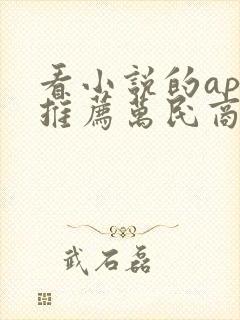 看小說的ap
推薦萬民商
武石磊